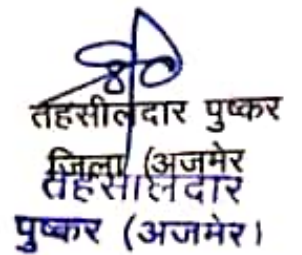 तहसीलदार पुष्कर
जिला (अजमेर
तहसीलदार
पुष्कर (अजमेर)